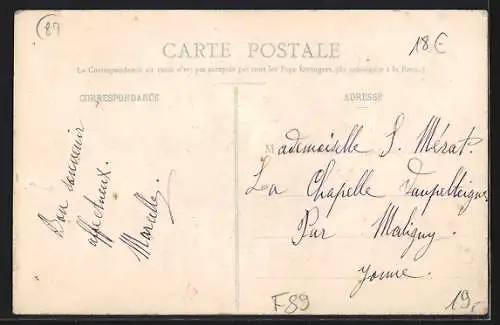 89
18€
CARTE POSTALE
La Correspondance au recto n'est pas acceptée par tous les Pays étrangers. (Se renseigner à la Poste.)
CORRESPONDANCE
ADRESSE
Bon souvenir
affectueux.
Marcelle.
Mademoiselle S. Mérat.
La Chapelle Vaupelteigne
Par Maligny.
Yonne.
F89
19